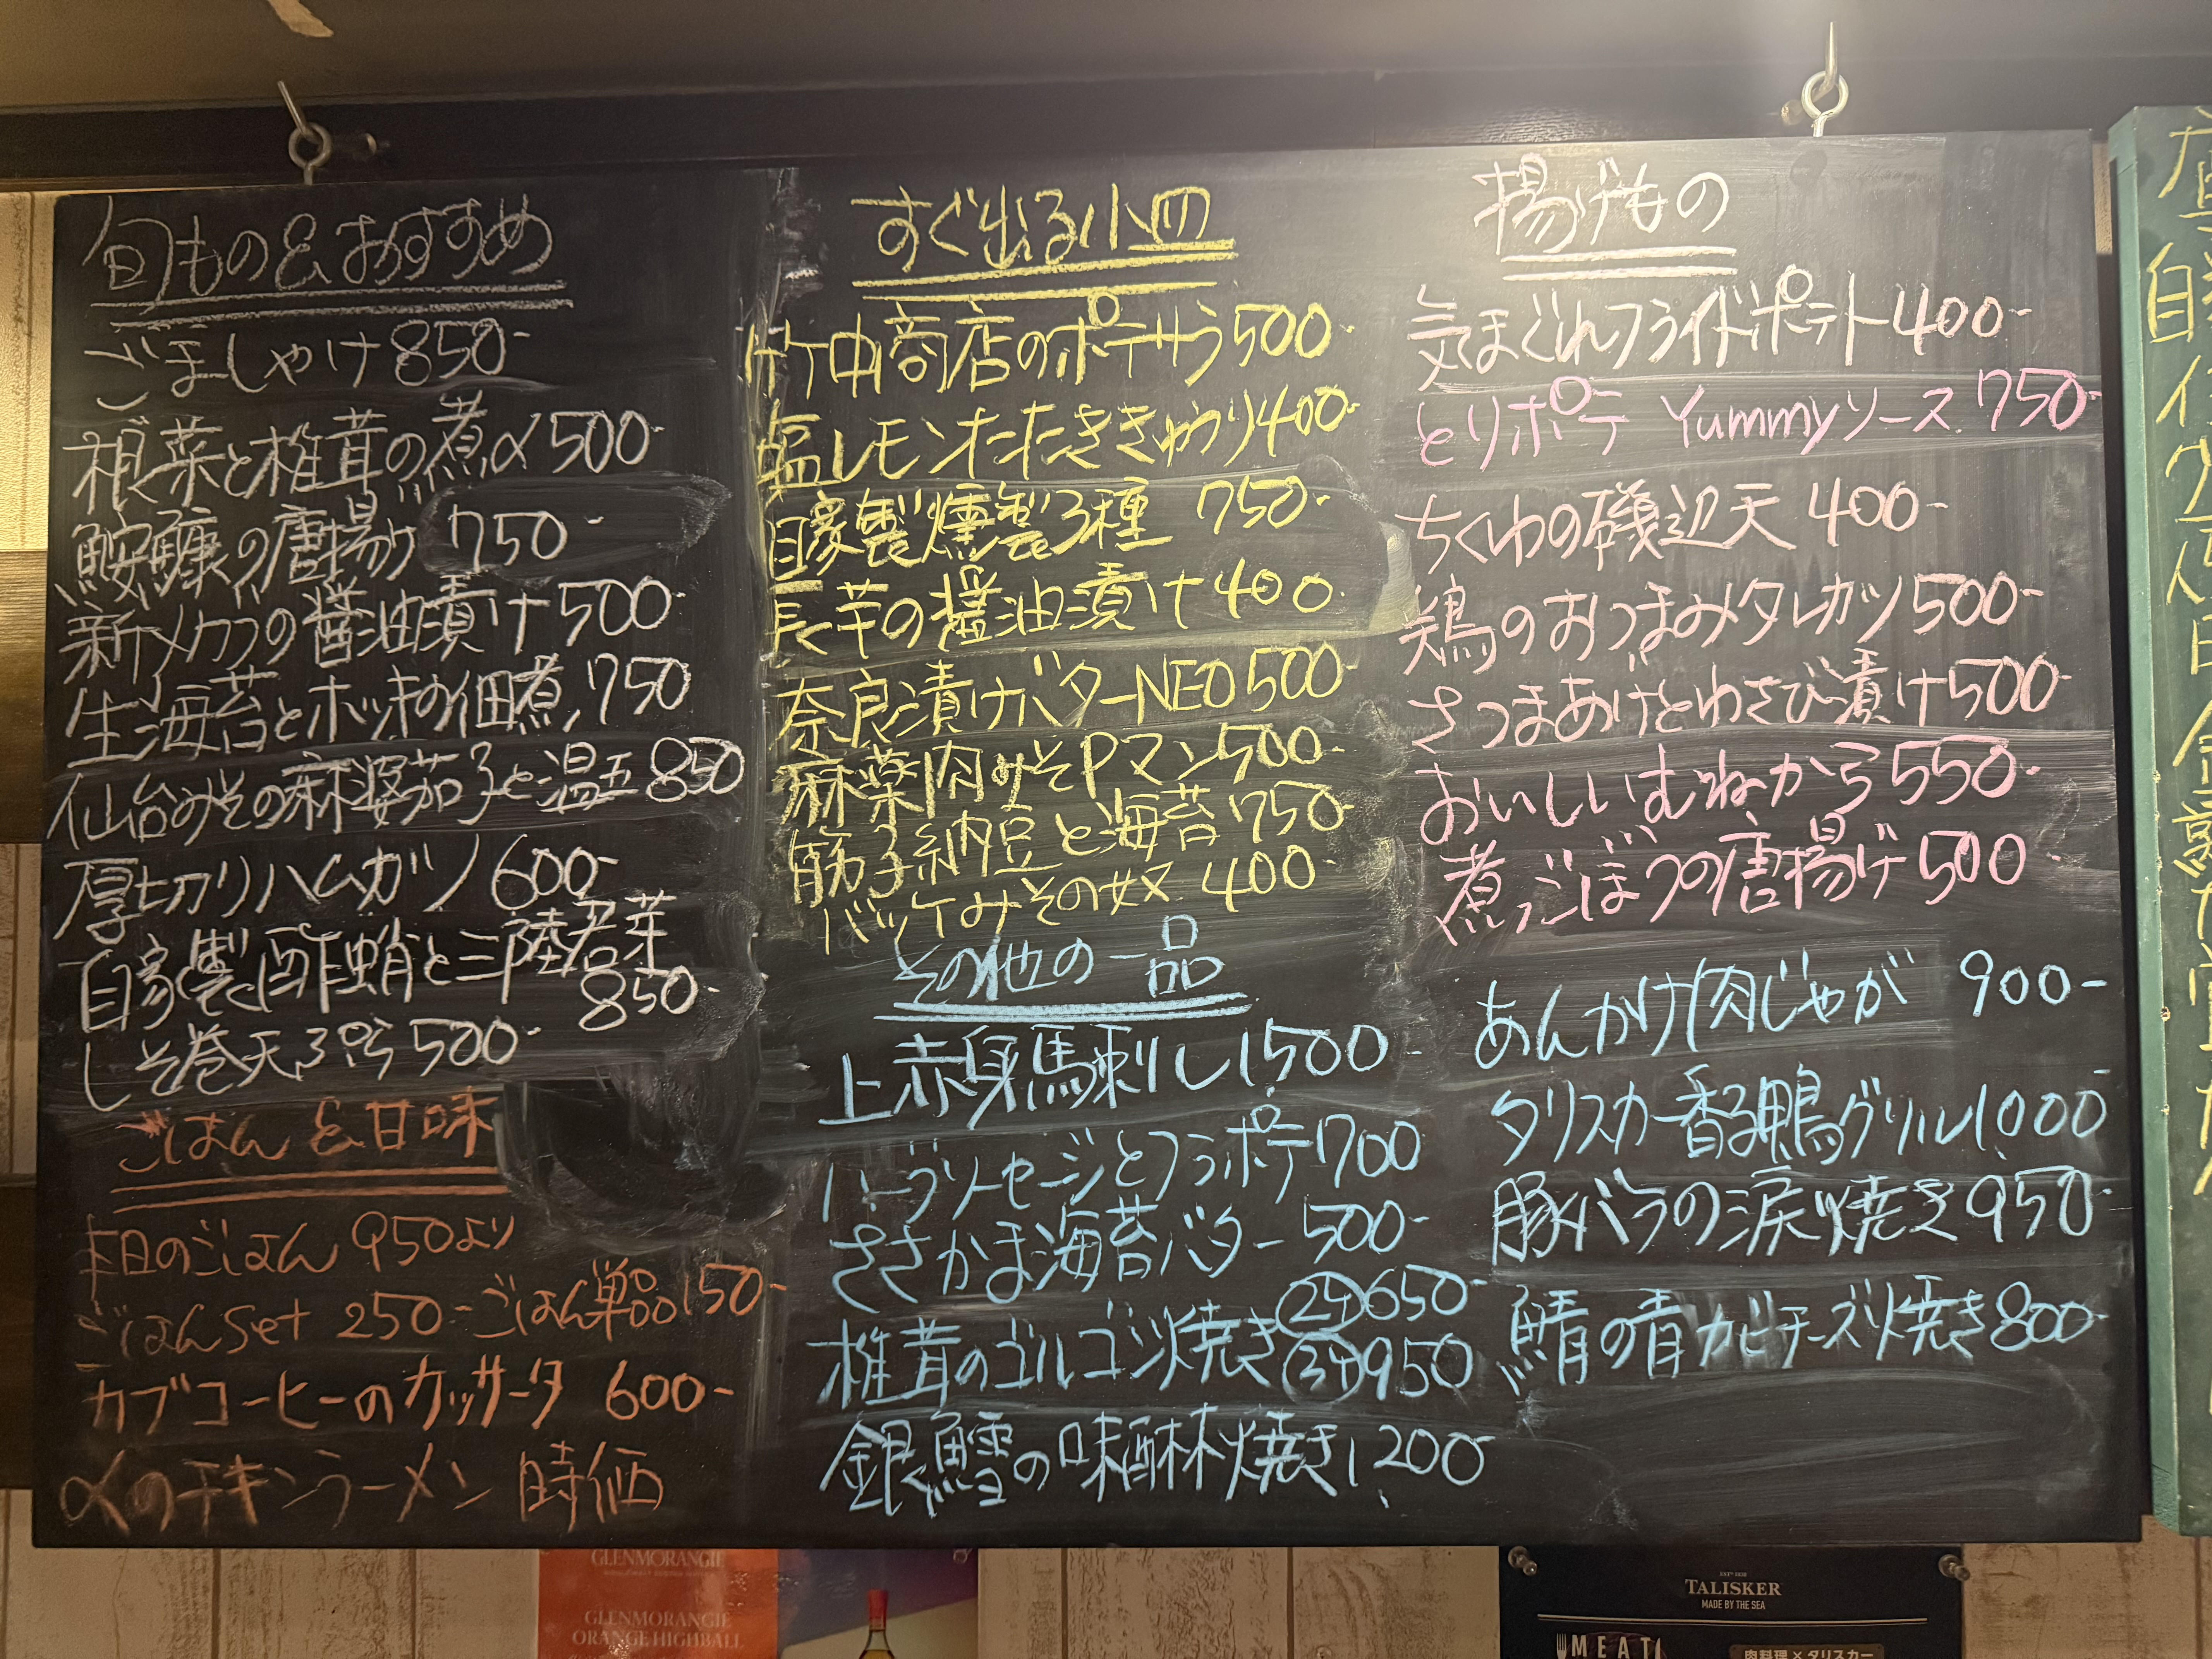 旬もの&おすすめ
ごましゃけ 850-
根菜と椎茸の煮〆 500-
鮟鱇の唐揚げ 750-
新メカブの醤油漬け 500-
生海苔とホッキの佃煮 750
仙台みその麻婆茄子と温玉 850
厚切りハムカツ 600-
自家製〆酢蛸と三陸若芽
850-
しそ巻天ぷら 500-
ごはん&甘味
本日のごはん 950より
ごはんSet 250- ごはん単品 150-
カブコーヒーのカッサータ 600-
〆のチキンラーメン 時価
すぐ出る小皿
竹中商店のポテサラ 500-
塩レモンたたききゅうり 400-
自家製燻製3種 750-
長芋の醤油漬け 400
奈良漬けバターNEO 500-
麻薬肉みそPマン 500-
筋子納豆と海苔 750-
バッケみその奴 400-
その他の一品
上赤身馬刺し 1,500-
ハーブソーセージとフラポテ 700
ささかま海苔バター 500-
椎茸のゴルゴンゾ焼き ②ヶ 650-
③ヶ 950
銀鱈の味醂焼き 1,200-
揚げもの
気まぐれフライドポテト 400-
とりポテ Yummyソース 750-
ちくわの磯辺天 400-
鶏のおつまみタレカツ 500-
さつまあげとわさび漬け 500-
おいしいむねから 550-
煮ごぼうの唐揚げ 500-
あんかけ肉じゃが 900-
タリスカー香る鴨グリル 1,000-
豚バラの涙焼き 950-
鯖の青カビチーズ焼き 800-
GLENMORANGIE
GLENMORANGIE
ORANGE HIGHBALL
TALISKER
MADE BY THE SEA
MEAT
肉料理×タリスカー